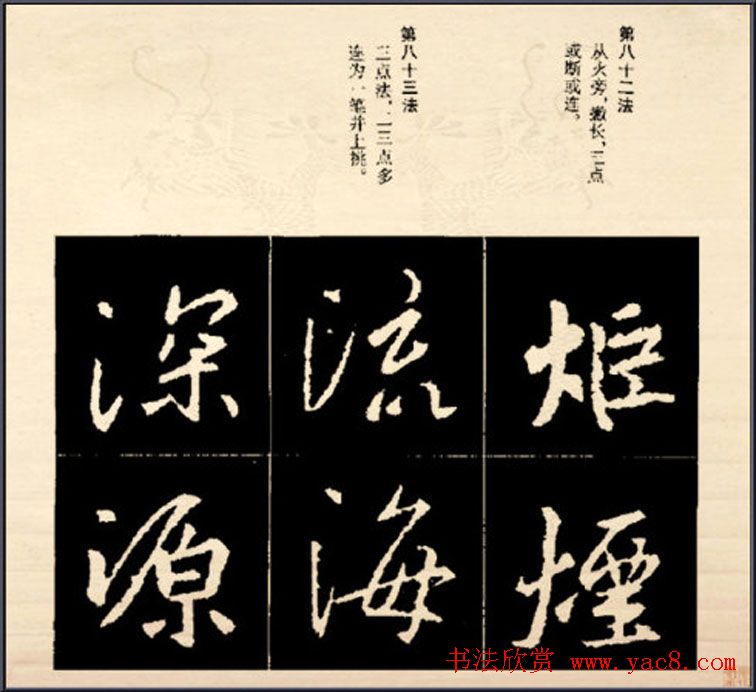 第八十二法
从火旁，撇长，三点
或断或连。
第八十三法
三点法，二三点多
连为一笔并上挑。
炬煙
流海
深源
书法欣赏 www.yac8.com